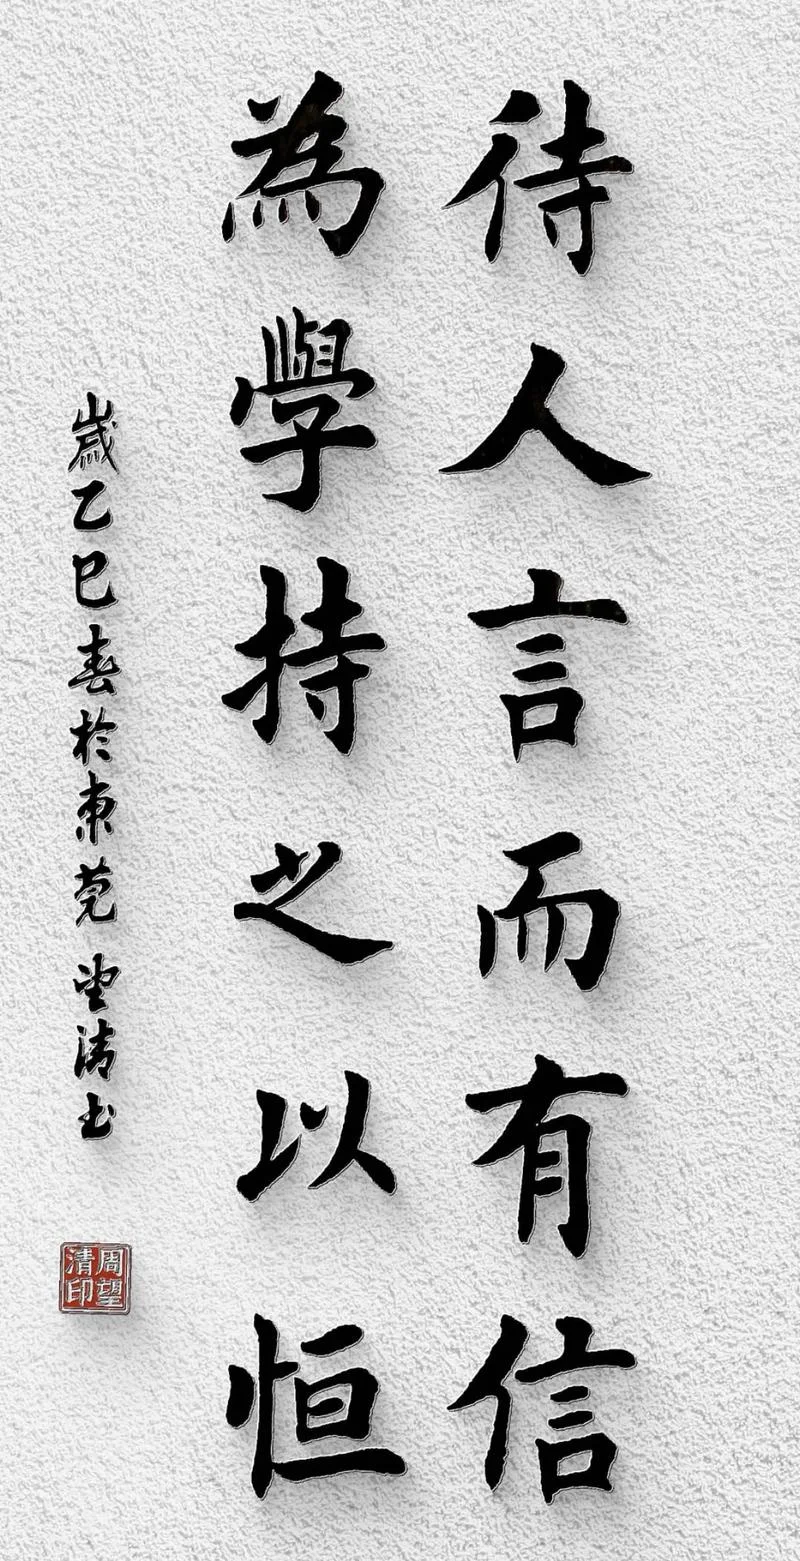 待人言而有信
為學持之以恒
歲乙巳春於東莞 望清书
周望清印